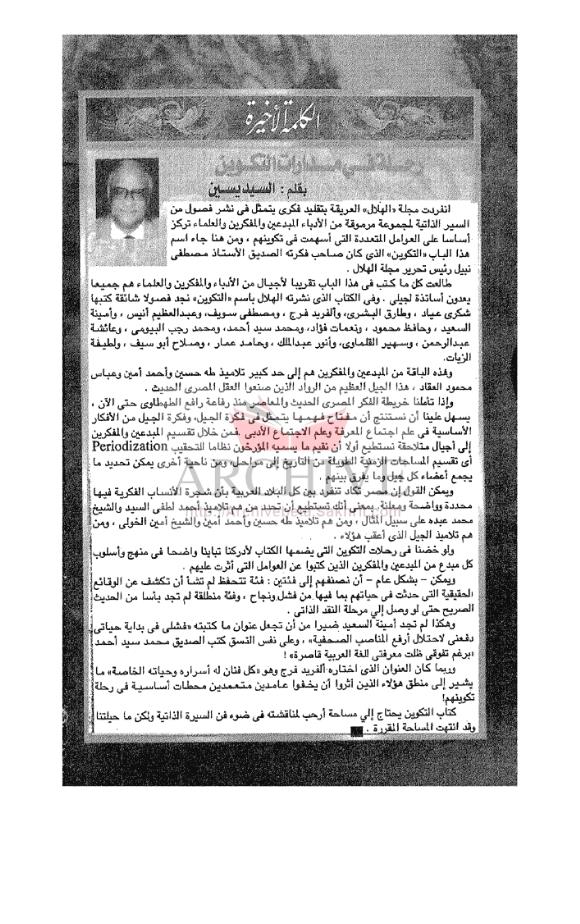 الكلمة الأخيرة
رحلة في مدارات التكوين
بقلم : السيد يسين
انفردت مجلة «الهلال» العريقة بتقليد فكرى يتمثل فى نشر فصول من
السير الذاتية لمجموعة مرموقة من الأدباء المبدعين والمفكرين والعلماء تركز
أساسا على العوامل المتعددة التى أسهمت فى تكوينهم ، ومن هنا جاء اسم
هذا الباب «التكوين» الذى كان صاحب فكرته الصديق الأستاذ مصطفى
نبيل رئيس تحرير مجلة الهلال .
طالعت كل ما كتب فى هذا الباب تقريبا لأجيال من الأدباء والمفكرين والعلماء هم جميعا
يعدون أساتذة لجيلى . وفى الكتاب الذى نشرته الهلال باسم «التكوين» نجد فصولا شائقة كتبها
شكرى عياد ، وطارق البشرى، وألفريد فرج ، ومصطفى سويف، وعبدالعظيم أنيس ، وأمينة
السعيد ، وحافظ محمود ، ونعمات فؤاد، ومحمد سيد أحمد، ومحمد رجب البيومى ، وعائشة
عبدالرحمن ، وسهير القلماوى، وأنور عبدالملك ، وحامد عمار ، وصلاح أبو سيف ، ولطيفة
الزيات.
وهذه الباقة من المبدعين والمفكرين هم إلى حد كبير تلاميذ طه حسين وأحمد أمين وعباس
محمود العقاد ، هذا الجيل العظيم من الرواد الذين صنعوا العقل المصرى الحديث .
وإذا تأملنا خريطة الفكر المصرى الحديث والمعاصر منذ رفاعة رافع الطهطاوى حتى الآن ،
يسهل علينا أن نستنتج أن مفتاح فهمها يتمثل فى فكرة الجيل، وفكرة الجيل من الأفكار
الأساسية فى علم اجتماع المعرفة وعلم الاجتماع الأدبى فمن خلال تقسيم المبدعين والمفكرين
إلى أجيال متلاحقة تستطيع أولا أن نقيم ما يسميه المؤرخون نظاما للتحقيب Periodization
أى تقسيم المساحات الزمنية الطويلة من التاريخ إلى مراحل، ومن ناحية أخرى يمكن تحديد ما
يجمع أعضاء كل جيل وما يفرق بينهم
ويمكن القول إن مصر تكاد تنفرد بين كل البلاد العربية بأن شجرة الأنساب الفكرية فيها
محددة وواضحة ومعلنة. بمعنى أنك تستطيع أن تحدد من هم تلاميذ أحمد لطفى السيد والشيخ
محمد عبده على سبيل المثال ، ومن هم تلاميذ طه حسين وأحمد أمين والشيخ أمين الخولى ، ومن
هم تلاميذ الجيل الذى أعقب هؤلاء .
ولو خضنا فى رحلات التكوين التى يضمها الكتاب لأدركنا تباينا واضحا فى منهج وأسلوب
كل مبدع من المبدعين والمفكرين الذين كتبوا عن العوامل التى أثرت عليهم .
ويمكن – بشكل عام – أن نصنفهم إلى فئتين : فئة تتحفظ لم تشأ أن تكشف عن الوقائع
الحقيقية التى حدثت فى حياتهم بما فيها من فشل ونجاح ، وفئة منطلقة لم تجد بأسا من الحديث
الصريح حتى لو وصل إلى مرحلة النقد الذاتى .
وهكذا لم تجد أمينة السعيد ضيرا من أن تجعل عنوان ما كتبته «فشلى فى بداية حياتى
دفعنى لاحتلال أرفع المناصب الصحفية» ، وعلى نفس النسق كتب الصديق محمد سيد أحمد
«برغم تفوقى ظلت معرفتى للغة العربية قاصرة» !
وربما كان العنوان الذى اختاره ألفريد فرج وهو «كل فنان له أسراره وحياته الخاصة» ما
يشير إلى منطق هؤلاء الذين آثروا أن يخفوا عامدين متعمدين محطات أساسية فى رحلة
تكوينهم!
كتاب التكوين يحتاج إلى مساحة أرحب لمناقشته فى ضوء فن السيرة الذاتية ولكن ما حيلتنا
وقد انتهت المساحة المقررة .
ARCHIVE